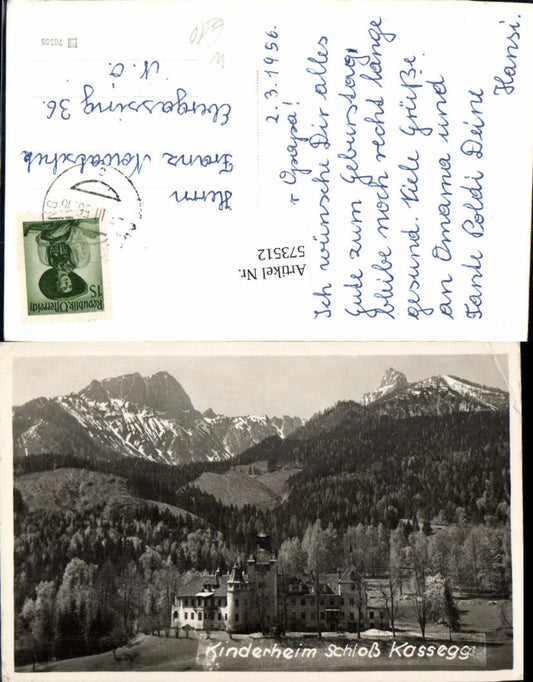 2.3.1956.
Opapa!
Ich wünsche Dir alles
Gute zum Geburtstag,
bleibe noch recht lange
gesund. Viele Grüße
an Omama und
Tante Poldi Deine
Hansi.
Herrn
Franz Nowatschek
Ebergassing 36.
N.Ö.
Artikel Nr.
573512
1S
Republik Österreich
Kinderheim Schloß Kassegg